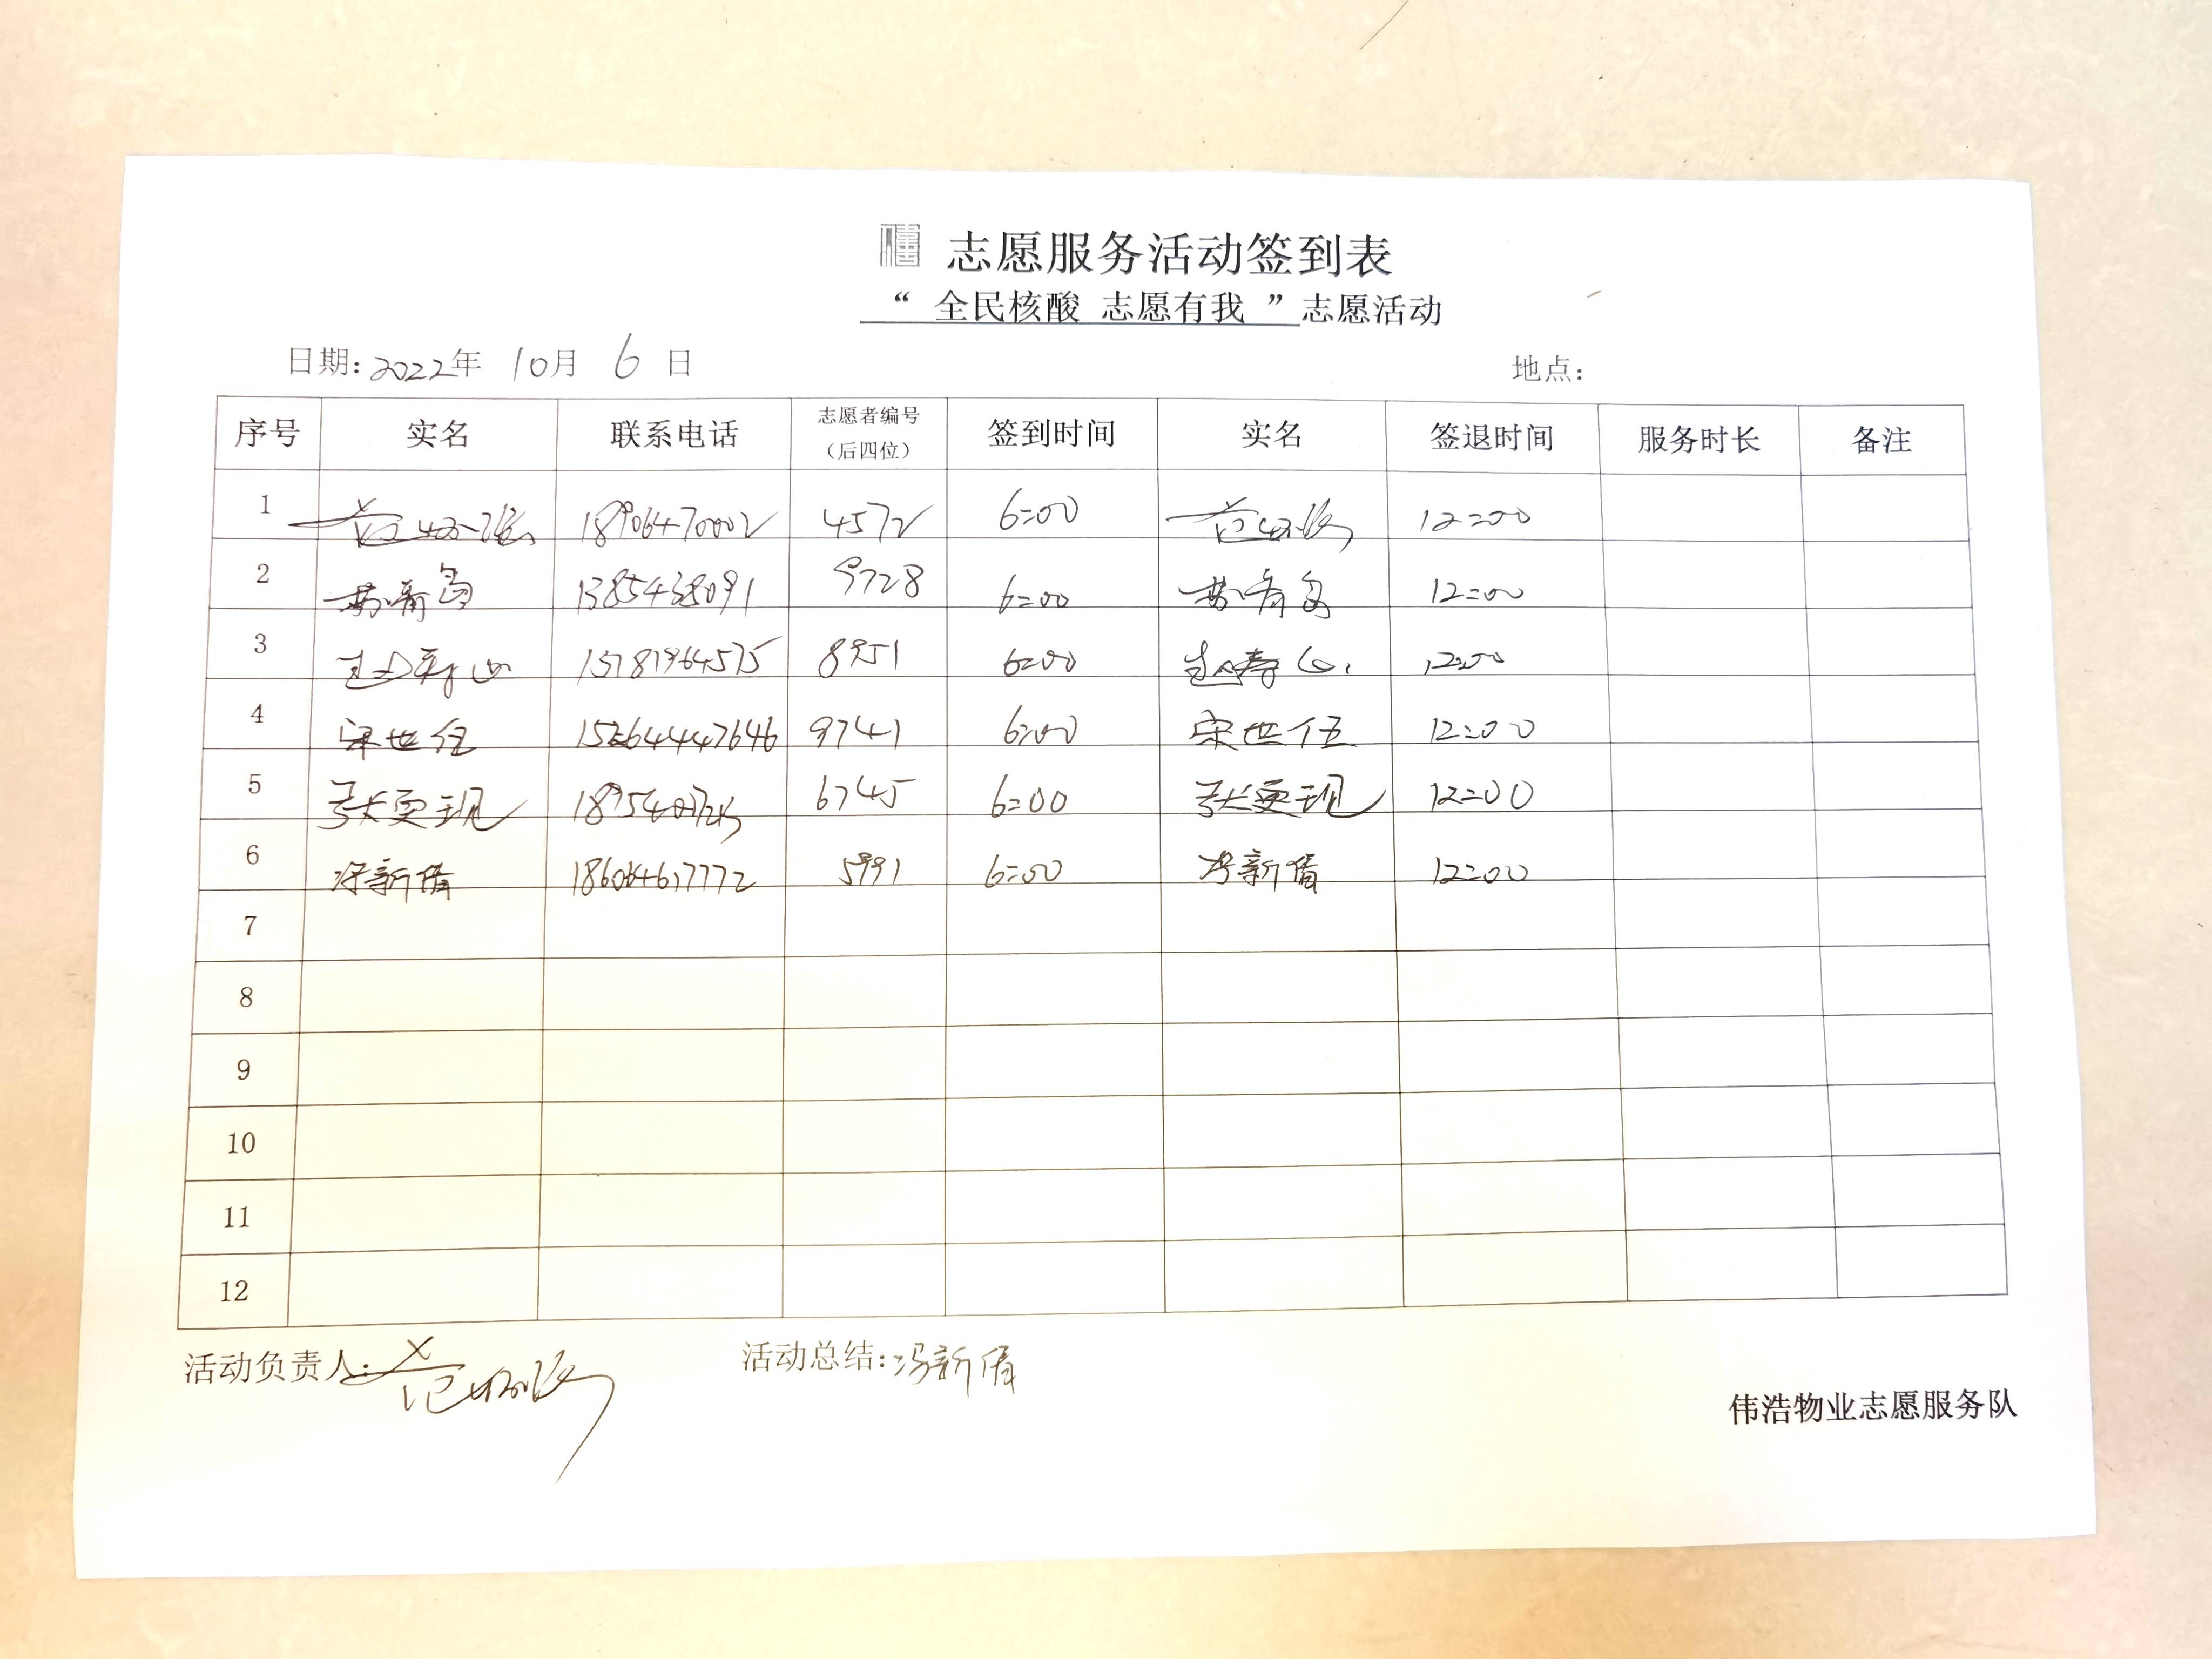 志愿服务活动签到表
“ 全民核酸 志愿有我 ”志愿活动
日期:2022年 10月 6 日 地点:
序号 实名 联系电话 志愿者编号（后四位） 签到时间 实名 签退时间 服务时长 备注
1 18906470002 4572 6:00 12:00
2 9728 6:00 12:00
3 8951 6:00 12:00
4 宋世伍 15264447646 9741 6:00 宋世伍 12:00
5 张更现 6745 6:00 张更现 12:00
6 冯新倩 5991 6:00 冯新倩 12:00
7
8
9
10
11
12
活动负责人: 活动总结:冯新倩
伟浩物业志愿服务队